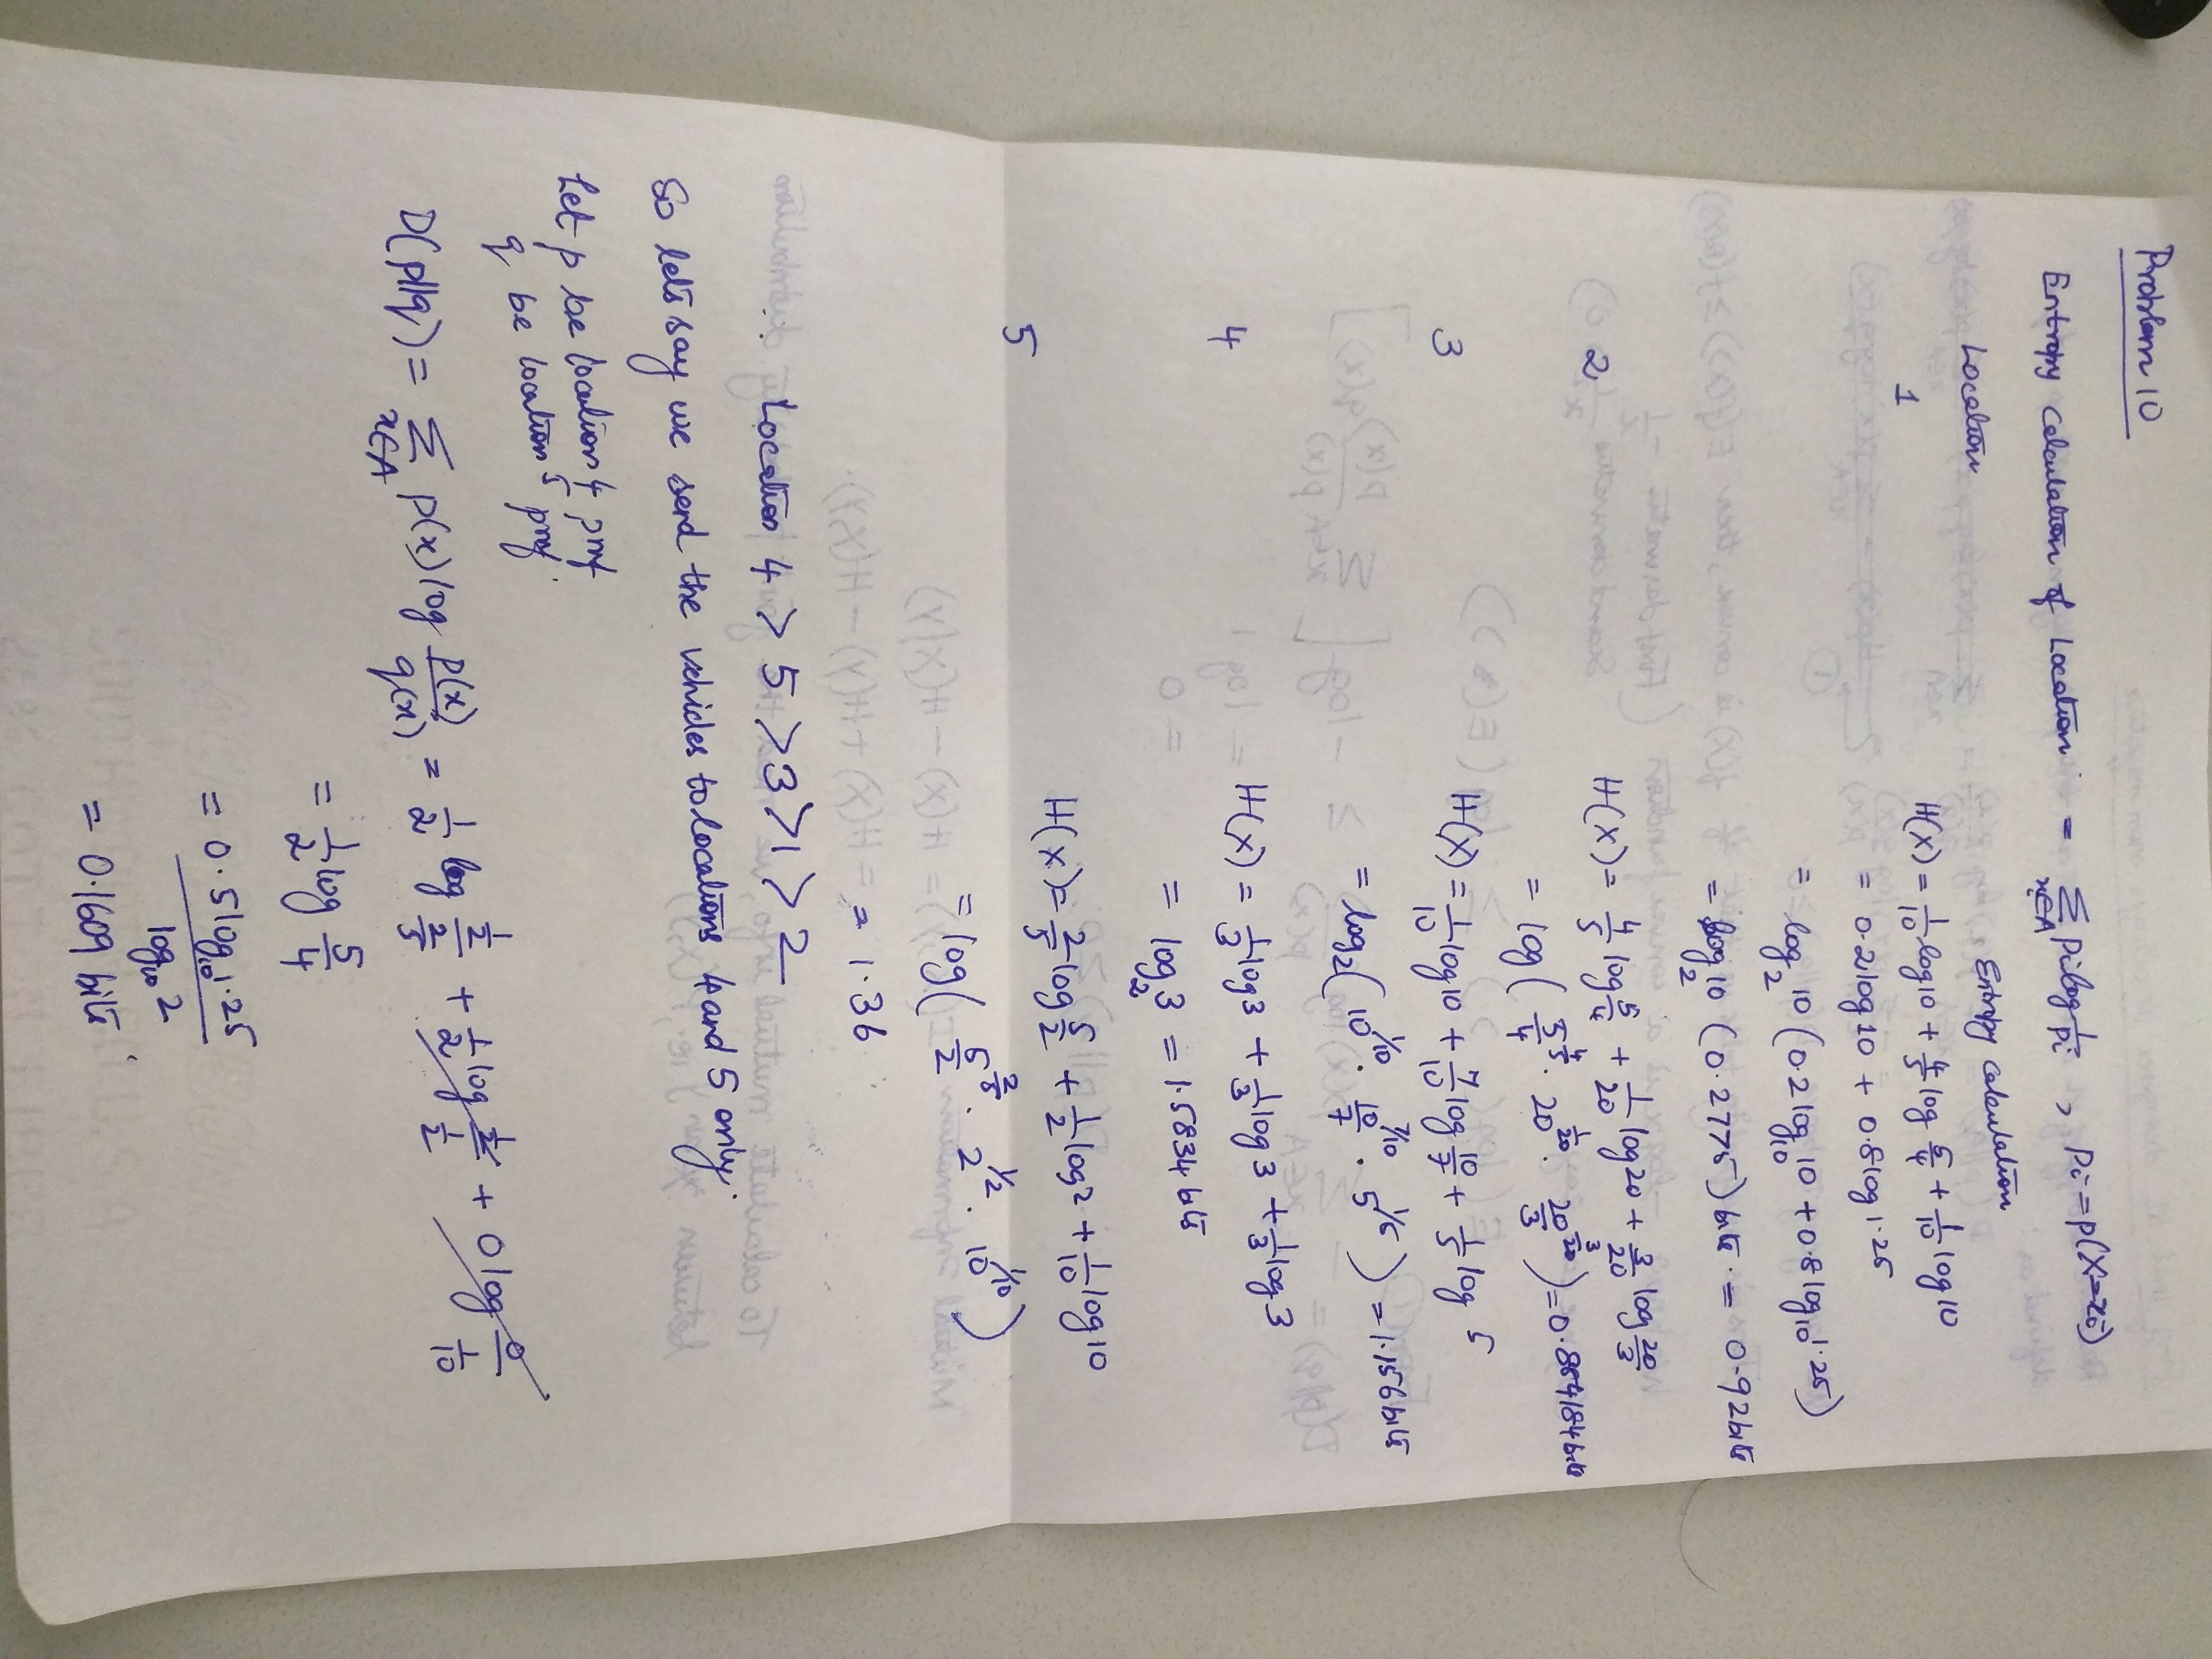 Problem 10
Entropy Calculation of Location = ∑_{x∈A} pi log 1/pi , pi = p(X=xi)
Location Entropy Calculation
1 H(X) = 1/10 log 10 + 4/5 log 5/4 + 1/10 log 10
= 0.2 log 10 + 0.8 log 1.25
= log₂ 10 (0.2 log₁₀ 10 + 0.8 log₁₀ 1.25)
= log₂ 10 (0.2775) bits = 0.92 bits
2 H(X) = 4/5 log 5/4 + 1/20 log 20 + 3/20 log 20/3
= log( 5/4^{4/5} . 20^{1/20} . 20/3^{3/20} ) = 0.884184 bits
3 H(X) = 1/10 log 10 + 7/10 log 10/7 + 1/5 log 5
= log₂( 10^{1/10} . 10/7^{7/10} . 5^{1/5} ) = 1.156 bits
4 H(X) = 1/3 log 3 + 1/3 log 3 + 1/3 log 3
= log₂ 3 = 1.5834 bits
5 H(X) = 2/5 log 5/2 + 1/2 log 2 + 1/10 log 10
= log( 5/2^{2/5} . 2^{1/2} . 10^{1/10} )
= 1.36
∴ Location 4 > 5 > 3 > 1 > 2
So lets say we send the vehicles to locations 4 and 5 only.
Let p be location 4 pmf
q be location 5 pmf.
D(p||q) = ∑_{x∈A} p(x) log p(x)/q(x) = 1/2 log (1/2)/(2/5) + 1/2 log (1/2)/(1/2) + 0 log 0/(1/10)
= 1/2 log 5/4
= 0.5 log₁₀ 1.25 / log₁₀ 2
= 0.1609 bits